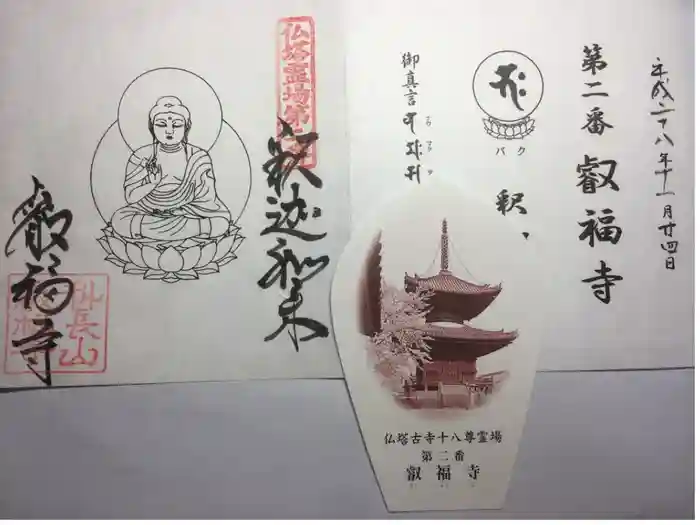 平成二十八年十一月廿四日
第二番 叡福寺
バク
釈
御真言
仏塔霊場第二番
釈迦如来
叡福寺
仏塔古寺十八尊霊場
第二番
叡福寺